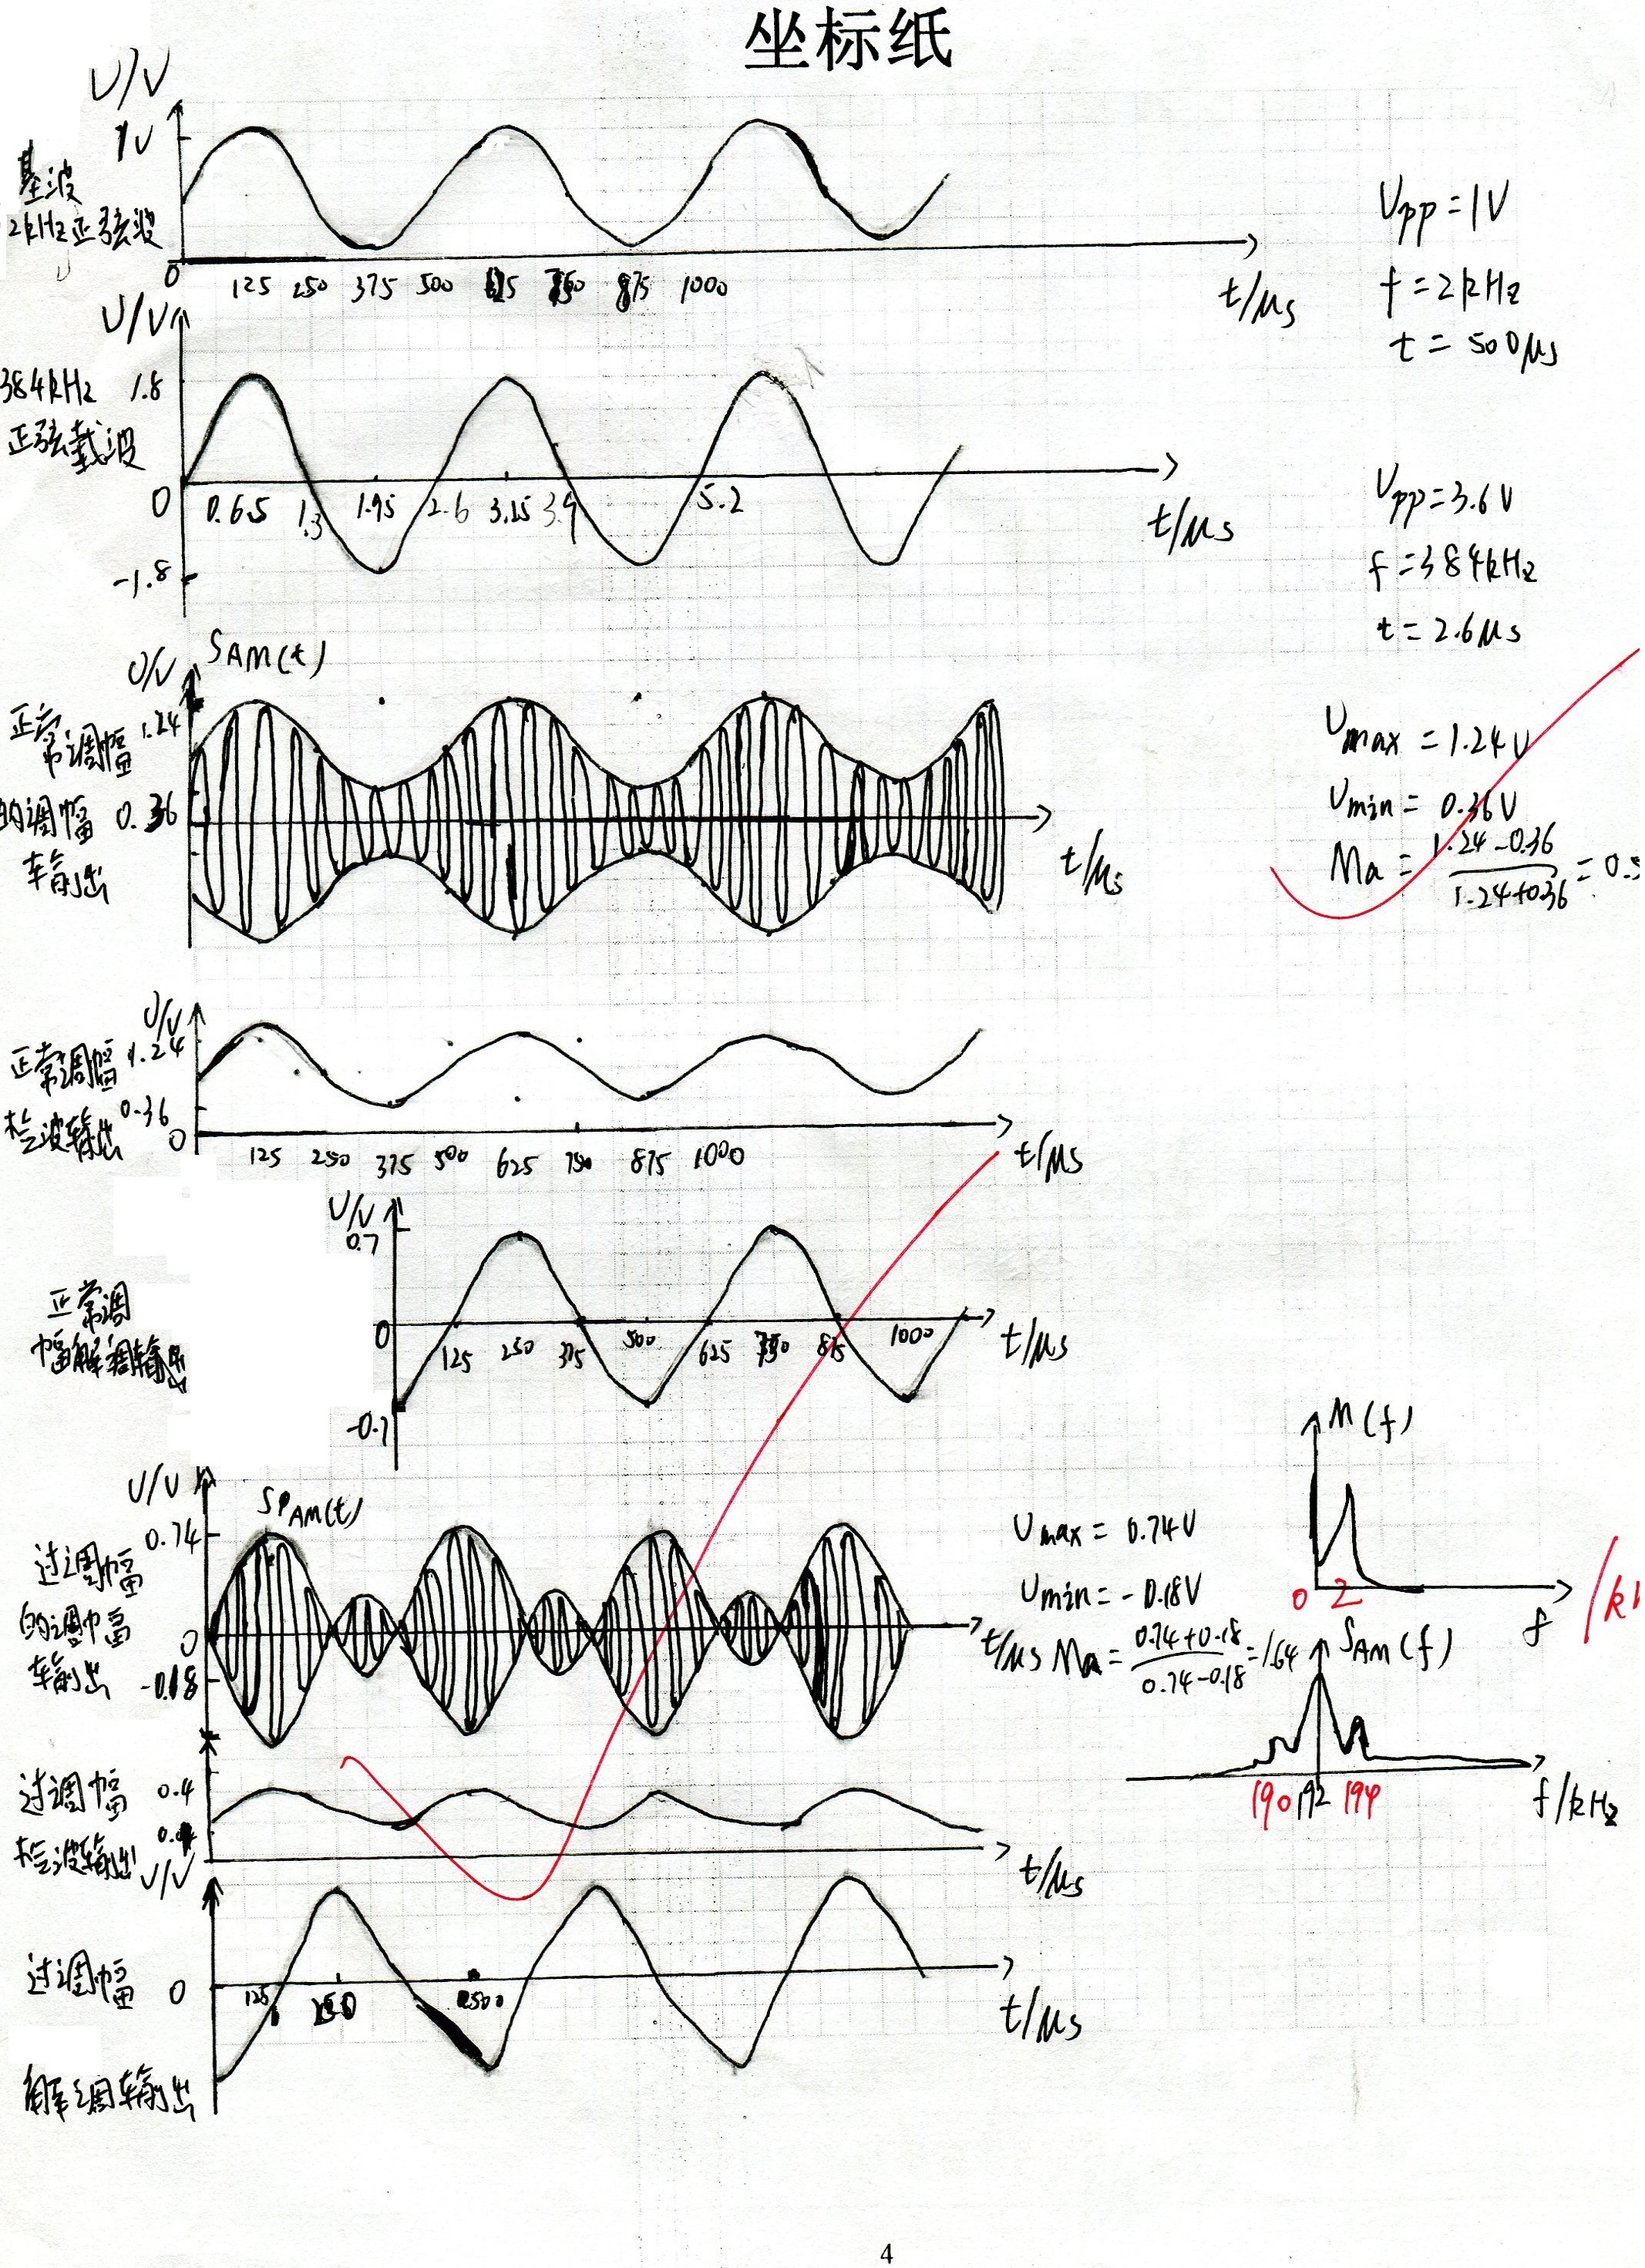 坐标纸
U/V
1V
基波
2kHz正弦波
0
125 250 375 500 625 750 875 1000
t/μs
Vpp=1V
f=2kHz
t=500μs
U/V
384kHz 1.8
正弦载波
0
0.65 1.3 1.95 2.6 3.25 3.9 5.2
t/μs
-1.8
Vpp=3.6V
f=384kHz
t=2.6μs
U/V SAM(t)
正常调幅 1.24
的调幅 0.36
输出
t/μs
Umax=1.24V
Umin=0.36V
Ma=(1.24-0.36)/(1.24+0.36)=0.5
U/V
正常调幅 1.24
检波输出 0.36
0
125 250 375 500 625 750 875 1000
t/μs
U/V
0.7
正常调
幅解调输出
0
125 250 375 500 625 750 875 1000
t/μs
-0.7
M(f)
0 2
f /kH
U/V SPAM(t)
0.74
过调幅
的调幅 0
输出 -0.18
t/μs
Umax=0.74V
Umin=-0.18V
Ma=(0.74+0.18)/(0.74-0.18)=1.64
SAM(f)
190 192 194
f/kHz
过调幅 0.4
检波输出
t/μs
U/V
过调幅 0
125 250 500
t/μs
解调输出
4